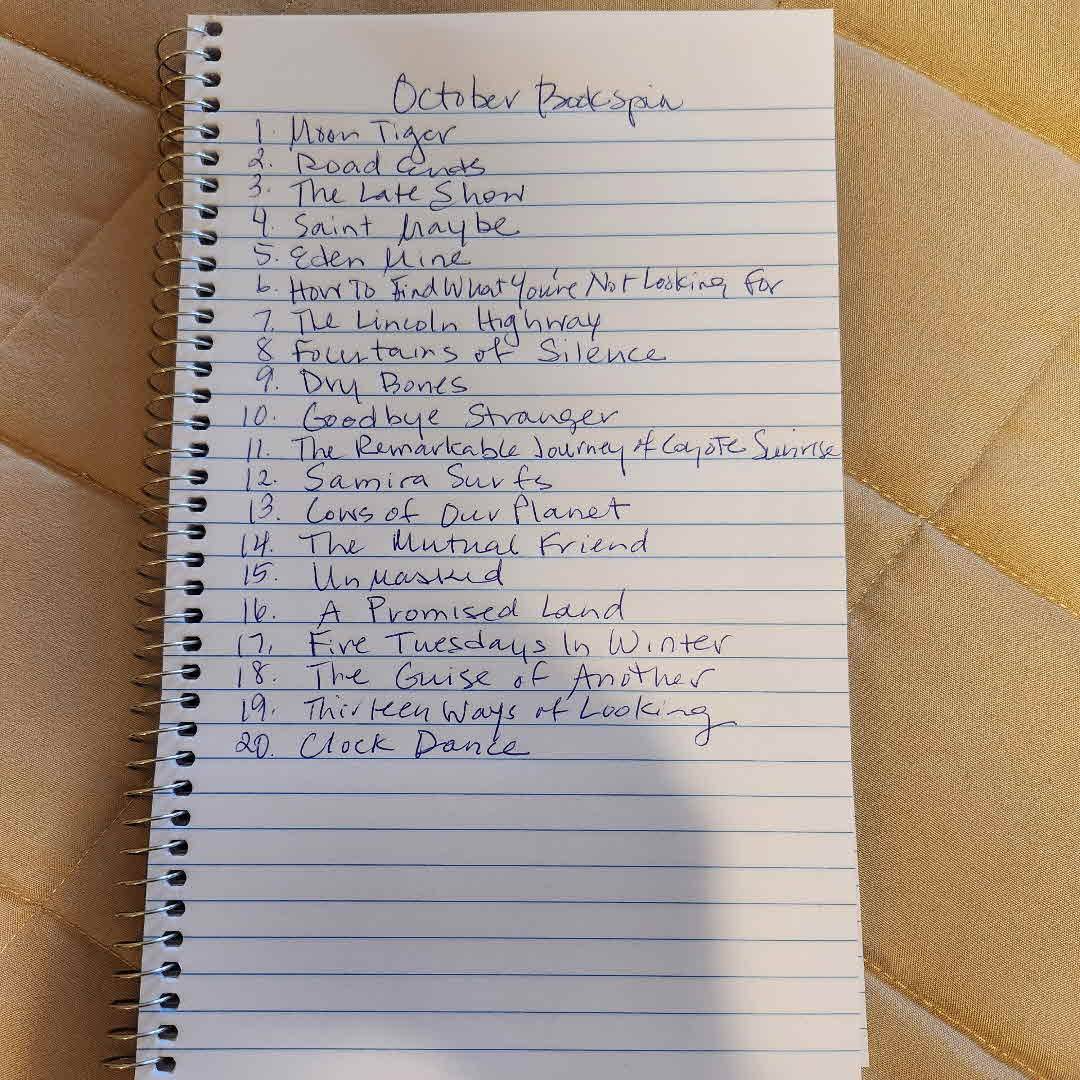 October Bookspin
1. Moon Tiger
2. Road Ends
3. The Late Show
4. Saint Maybe
5. Eden Mine
6. How To Find What You're Not Looking For
7. The Lincoln Highway
8 Fountains of Silence
9. Dry Bones
10. Goodbye Stranger
11. The Remarkable Journey of Coyote Sunrise
12. Samira Surfs
13. Cows of Our Planet
14. The Mutual Friend
15. Unmasked
16. A Promised Land
17. Five Tuesdays In Winter
18. The Guise of Another
19. Thirteen Ways of Looking
20. Clock Dance